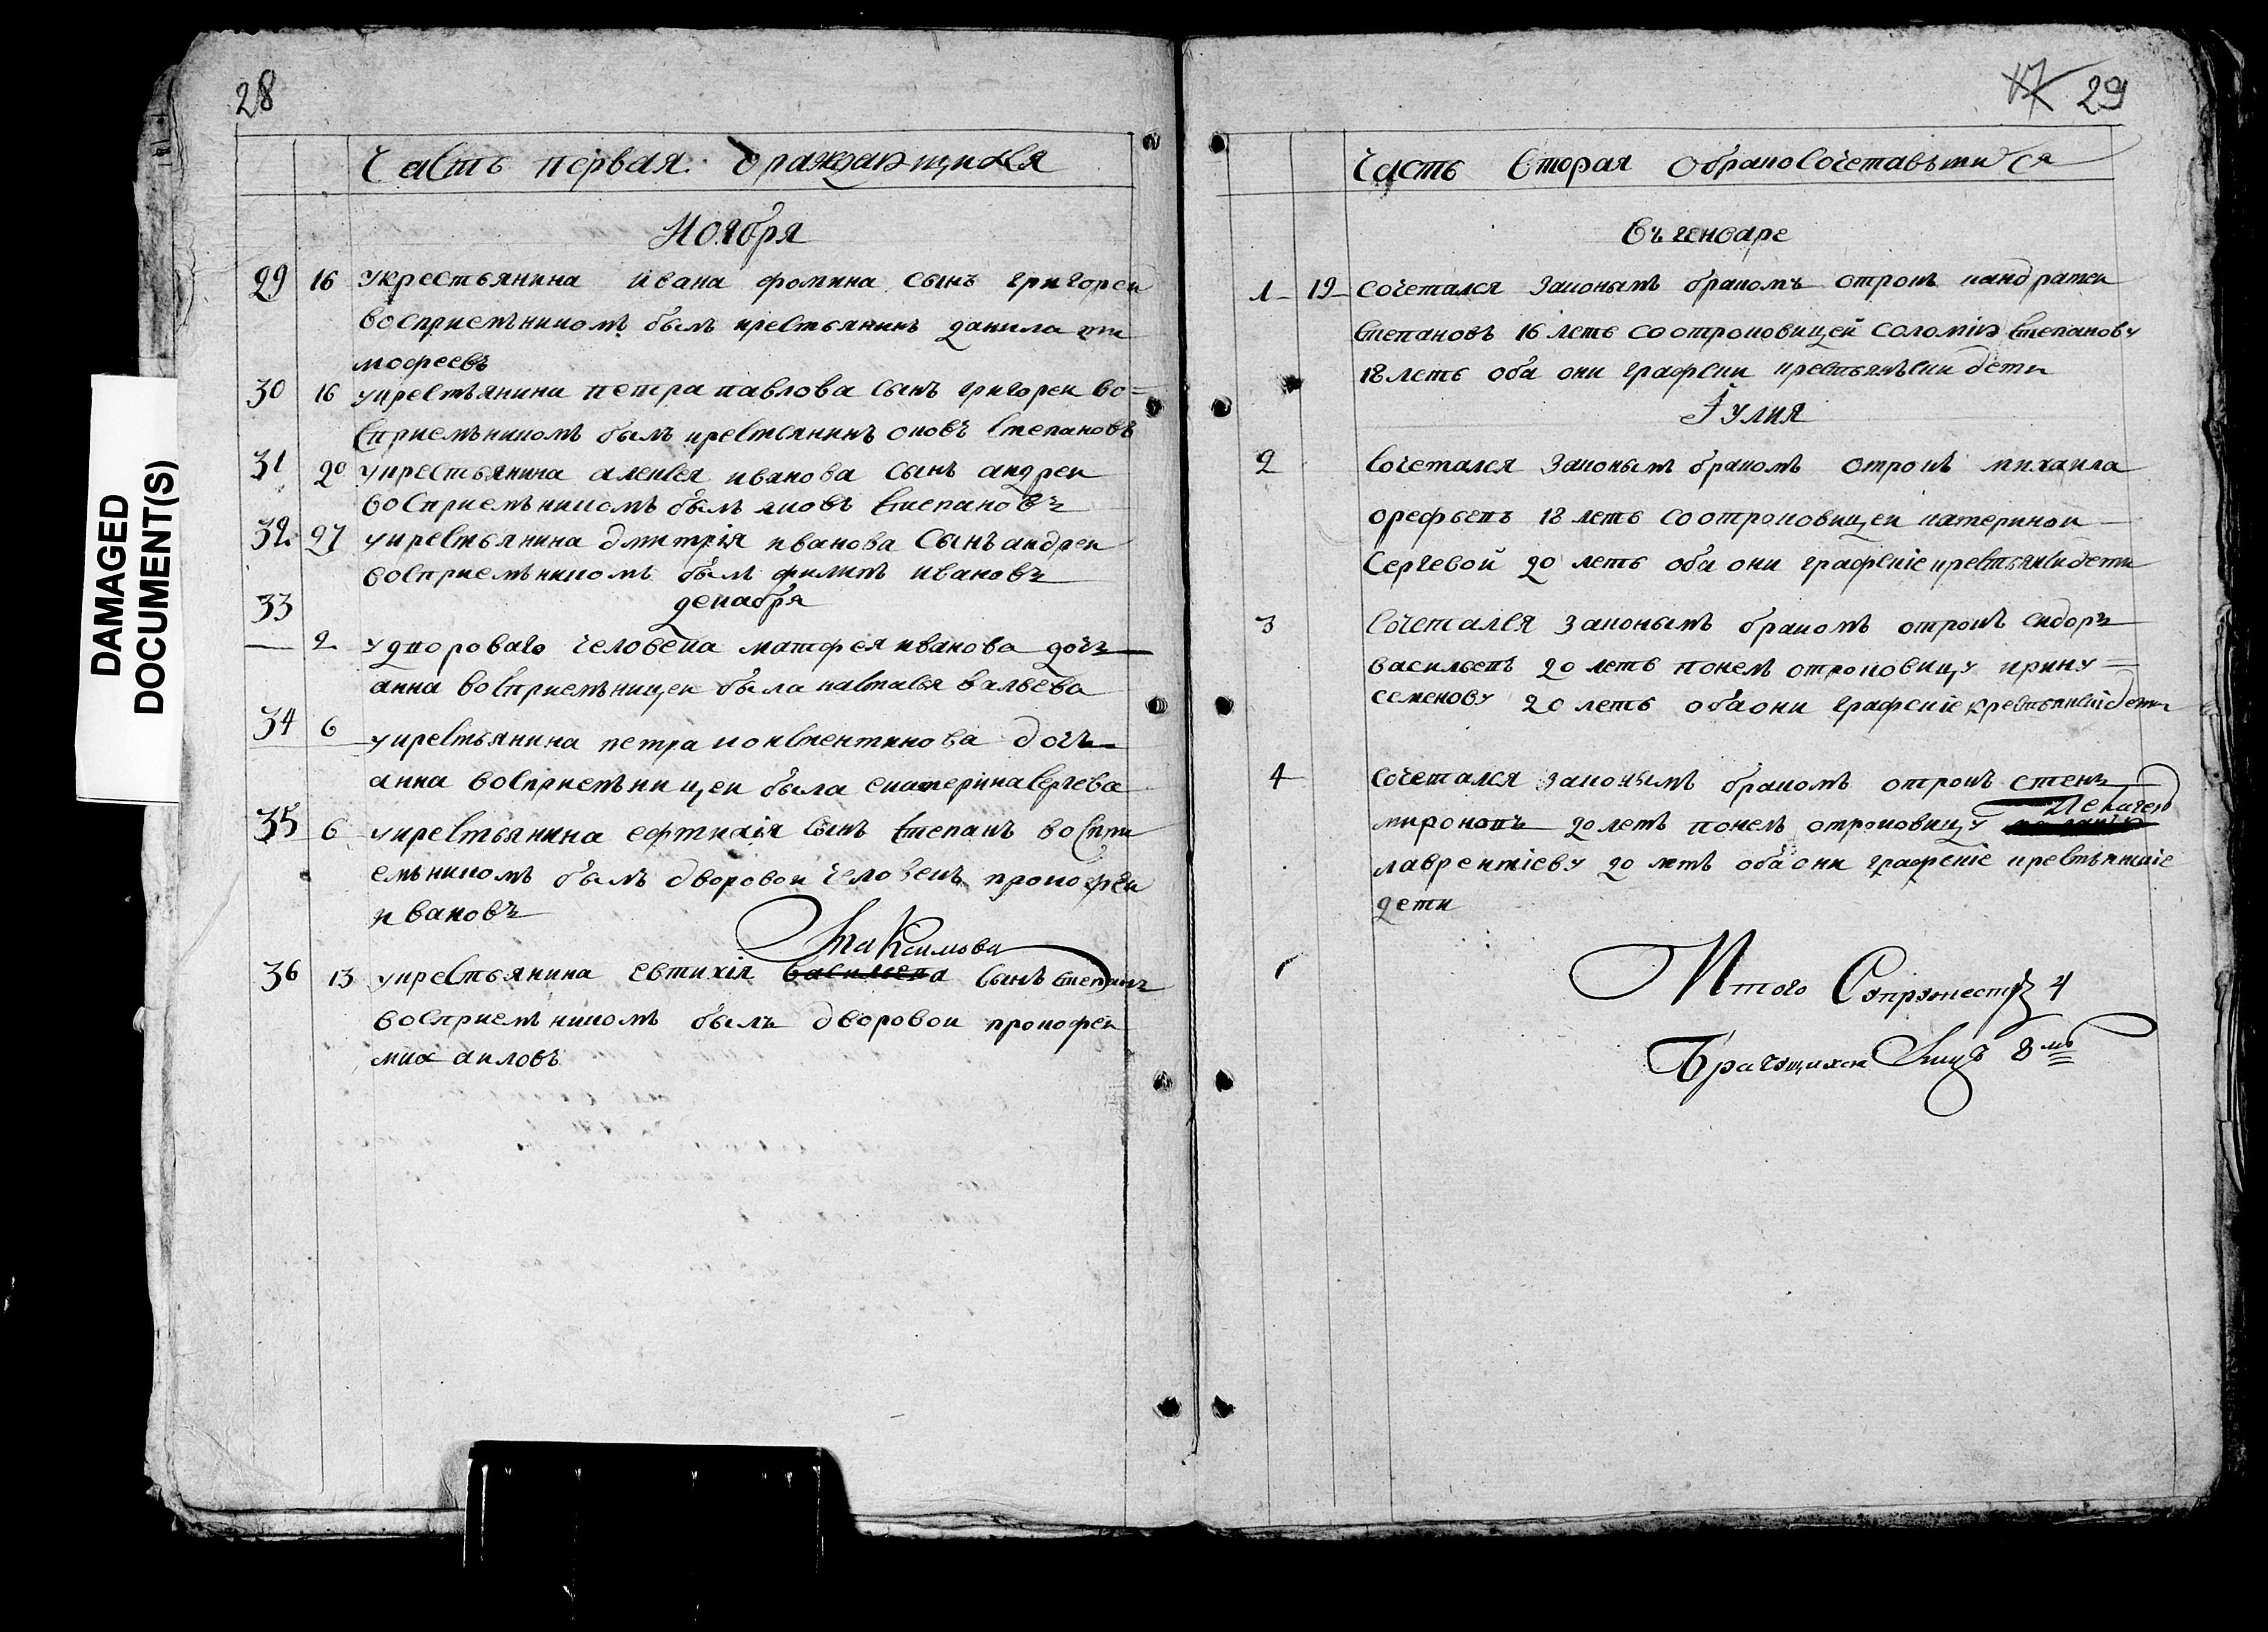 DAMAGED
DOCUMENT(S)
28
Часть первая ораждающихся
Ноября
29 16 укрестьянина ивана фомина сынъ григореи
восприемъникомъ былъ крестьянинъ данила ти
мофеевъ
30 16 укрестьянина петра павлова сынъ григореи во=
сприемъникомъ былъ крестянинъ яковъ степановъ
31 20 укрестьянина алексея иванова сынъ андреи
восприемъникомъ былъ яковъ степановъ
32 27 укрестьянина дмитрія иванова сынъ андреи
восприемъникомъ былъ филипъ ивановъ
декабря
33
2 удвороваго человека матфея иванова дочь
анна восприемъницеи была насталья
34 6 укрестьянина петра константинова дочь
анна восприемъницеи была екатерина сергева
35 6 укрестьянина ефтихія сынъ степанъ воспри
емъникомъ былъ дворовои человекъ прокофеи
ивановъ
Максимова
36 13 укрестьянина евтихія васильева сынъ степанъ
восприемъникомъ былъ дворовои прокофеи
михаиловъ
17 29
Часть вторая обракосочетавъшися
въ генваре
1 19 сочетался законымъ бракомъ отрокъ кандратеи
степановъ 16 леть соотроковицей соломію степанову
18 леть оба они графски крестьянъски дети
Іулия
2 сочетался законымъ бракомъ отрокъ михаила
орефьевъ 18 леть соотроковицеи катеринои
Сергевой 20 леть оба они графскіе крестьянски дети
3 сочетался законымъ бракомъ отрокъ сидоръ
васильевъ 20 леть понелъ отроковицу ирину=
семенову 20 леть оба они графскіе крестьянскіе дети
4 сочетался законымъ бракомъ отрокъ
Пелагею
мироновъ 20 летъ понелъ отроковицу
лаврентіеву 20 летъ оба они графскіе крестьянскіе
дети
Итого Супружествъ 4
Брачущихся Лицъ 8мь